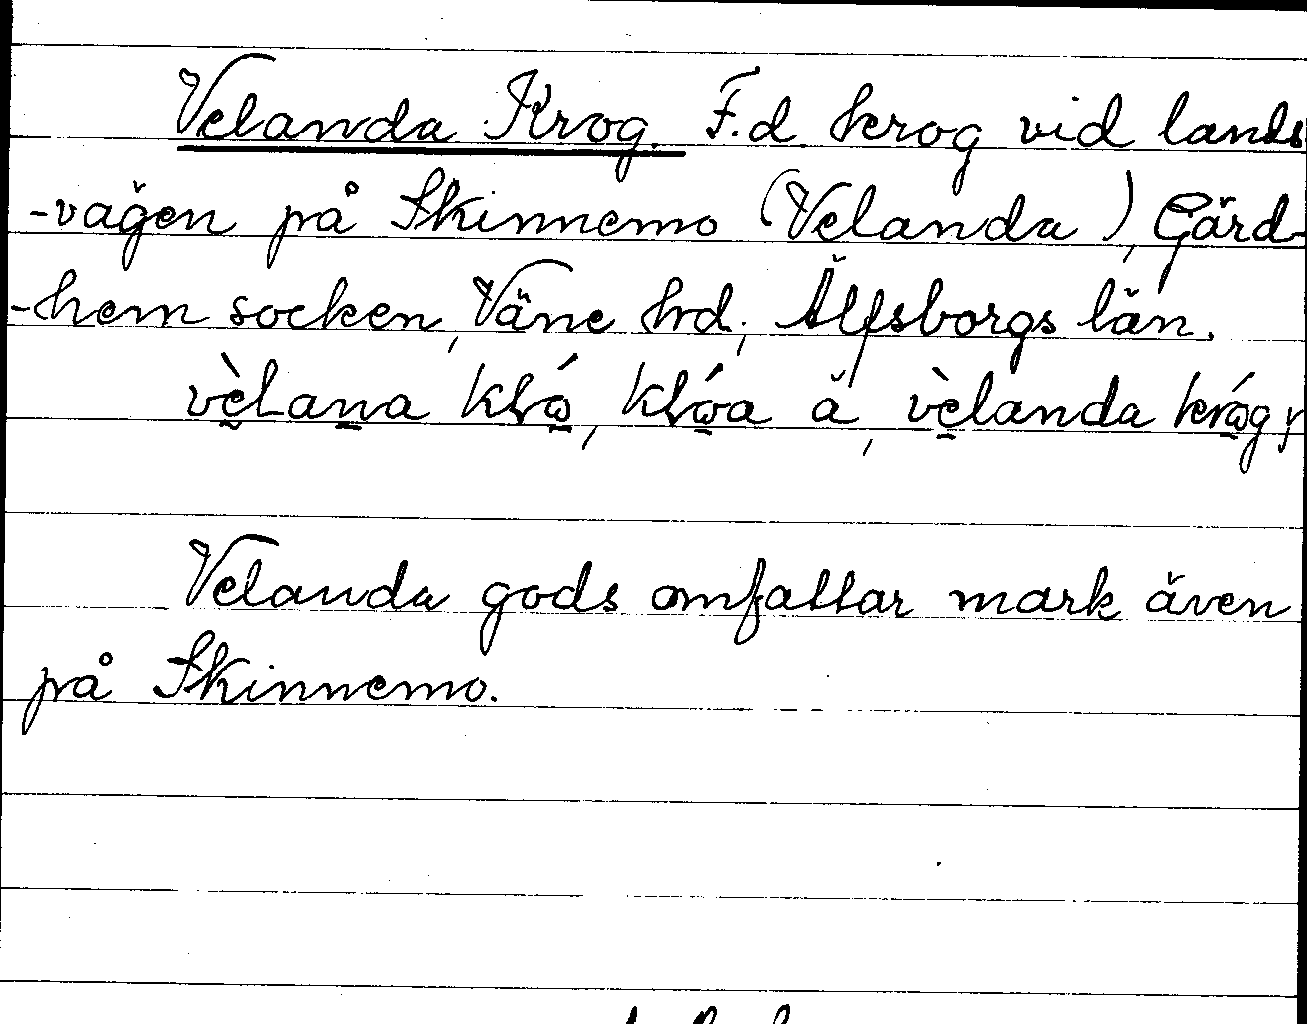 Velanda Krog. F.d. krog vid lands
-vägen på Skinnemo (Velanda), Gärd-
-hem socken, Väne hrd, Älfsborgs län.
vèlana kló, klóa ä, vèlanda króg
Velanda gods omfattar mark även
på Skinnemo.